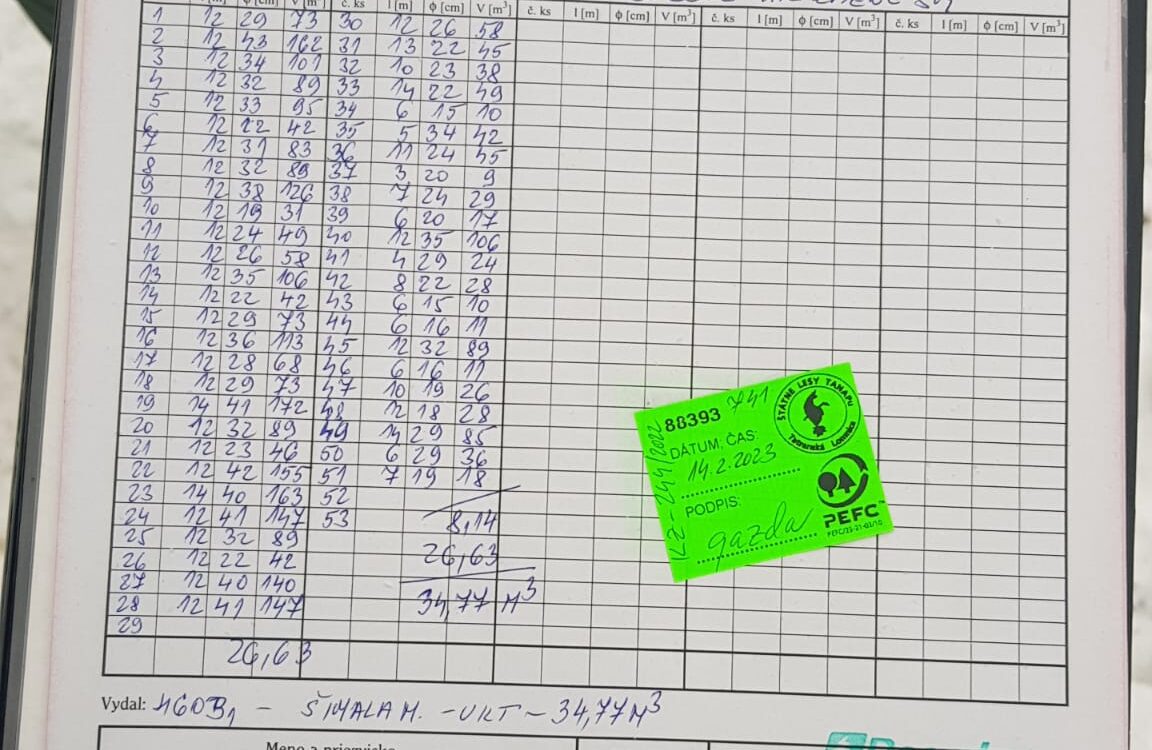 č. ks l [m] φ [cm] V [m³] č. ks l [m] φ [cm] V [m³] č. ks l [m] φ [cm] V [m³]
1 12 29 73 30 12 26 58
2 12 43 162 31 13 22 45
3 12 34 101 32 10 23 38
4 12 32 89 33 14 22 49
5 12 33 95 34 6 15 10
6 12 22 42 35 5 34 42
7 12 31 83 36 11 24 45
8 12 32 89 37 3 20 9
9 12 38 126 38 7 24 29
10 12 19 31 39 6 20 17
11 12 24 49 40 12 35 106
12 12 26 58 41 4 29 24
13 12 35 106 42 8 22 28
14 12 22 42 43 6 15 10
15 12 29 73 44 6 16 11
16 12 36 113 45 12 32 89
17 12 28 68 46 6 16 11
18 12 29 73 47 10 19 26
19 14 41 172 48 12 18 28
20 12 32 89 49 14 29 85
21 12 23 46 50 6 29 36
22 12 42 155 51 7 19 18
23 14 40 163 52
24 12 41 147 53 8,14
25 12 32 89
26 12 22 42 26,63
27 12 40 140
28 12 41 147 34,77 M³
29
26,63
88393 741
ŠTÁTNE LESY TANAPU
Tatranská Lomnica
DÁTUM, ČAS:
14.2.2023
PODPIS:
gazda
PEFC™
Vydal: 460B1 - ŠIMALA M. - UKT - 34,77 M³
Meno a priezvisko